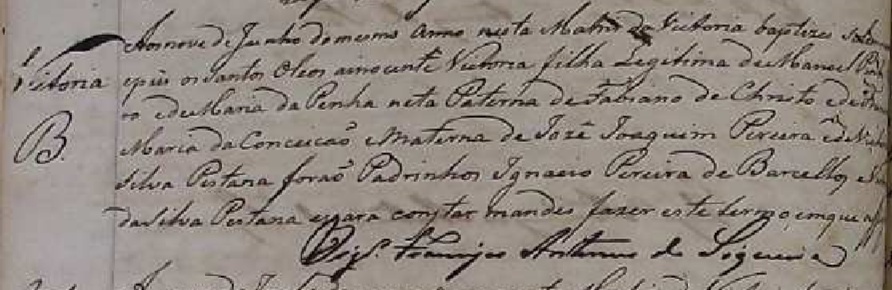 Victoria
B.
Aos nove de Junho do mesmo anno nesta Matriz da Victoria baptizei
epus os Santos Oleos a inocente Victoria filha Legitima de Manoel
ro e de Maria da Penha neta Paterna de Fabiano de Christo e de
Maria da Conceicaõ e Materna de Jozé Joaquim Pereira e de
Silva Pestana foraõ Padrinhos Ignacio Pereira de Barcellos e
da Silva Pestana e para constar mandei fazer este termo, em que
Francisco Antunes de Siqueira